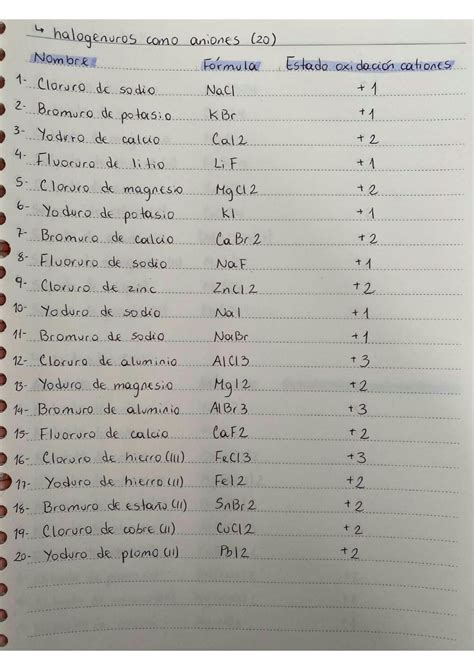 ↳ halogenuros como aniones (20)
Nombre Fórmula Estado oxidación cationes
1- Cloruro de sodio NaCl +1
2- Bromuro de potasio KBr +1
3- Yoduro de calcio CaI2 +2
4- Fluoruro de litio LiF +1
5- Cloruro de magnesio MgCl2 +2
6- Yoduro de potasio KI +1
7- Bromuro de calcio CaBr2 +2
8- Fluoruro de sodio NaF +1
9- Cloruro de zinc ZnCl2 +2
10- Yoduro de sodio NaI +1
11- Bromuro de sodio NaBr +1
12- Cloruro de aluminio AlCl3 +3
13- Yoduro de magnesio MgI2 +2
14- Bromuro de aluminio AlBr3 +3
15- Fluoruro de calcio CaF2 +2
16- Cloruro de hierro (III) FeCl3 +3
17- Yoduro de hierro (II) FeI2 +2
18- Bromuro de estaño (II) SnBr2 +2
19- Cloruro de cobre (II) CuCl2 +2
20- Yoduro de plomo (II) PbI2 +2